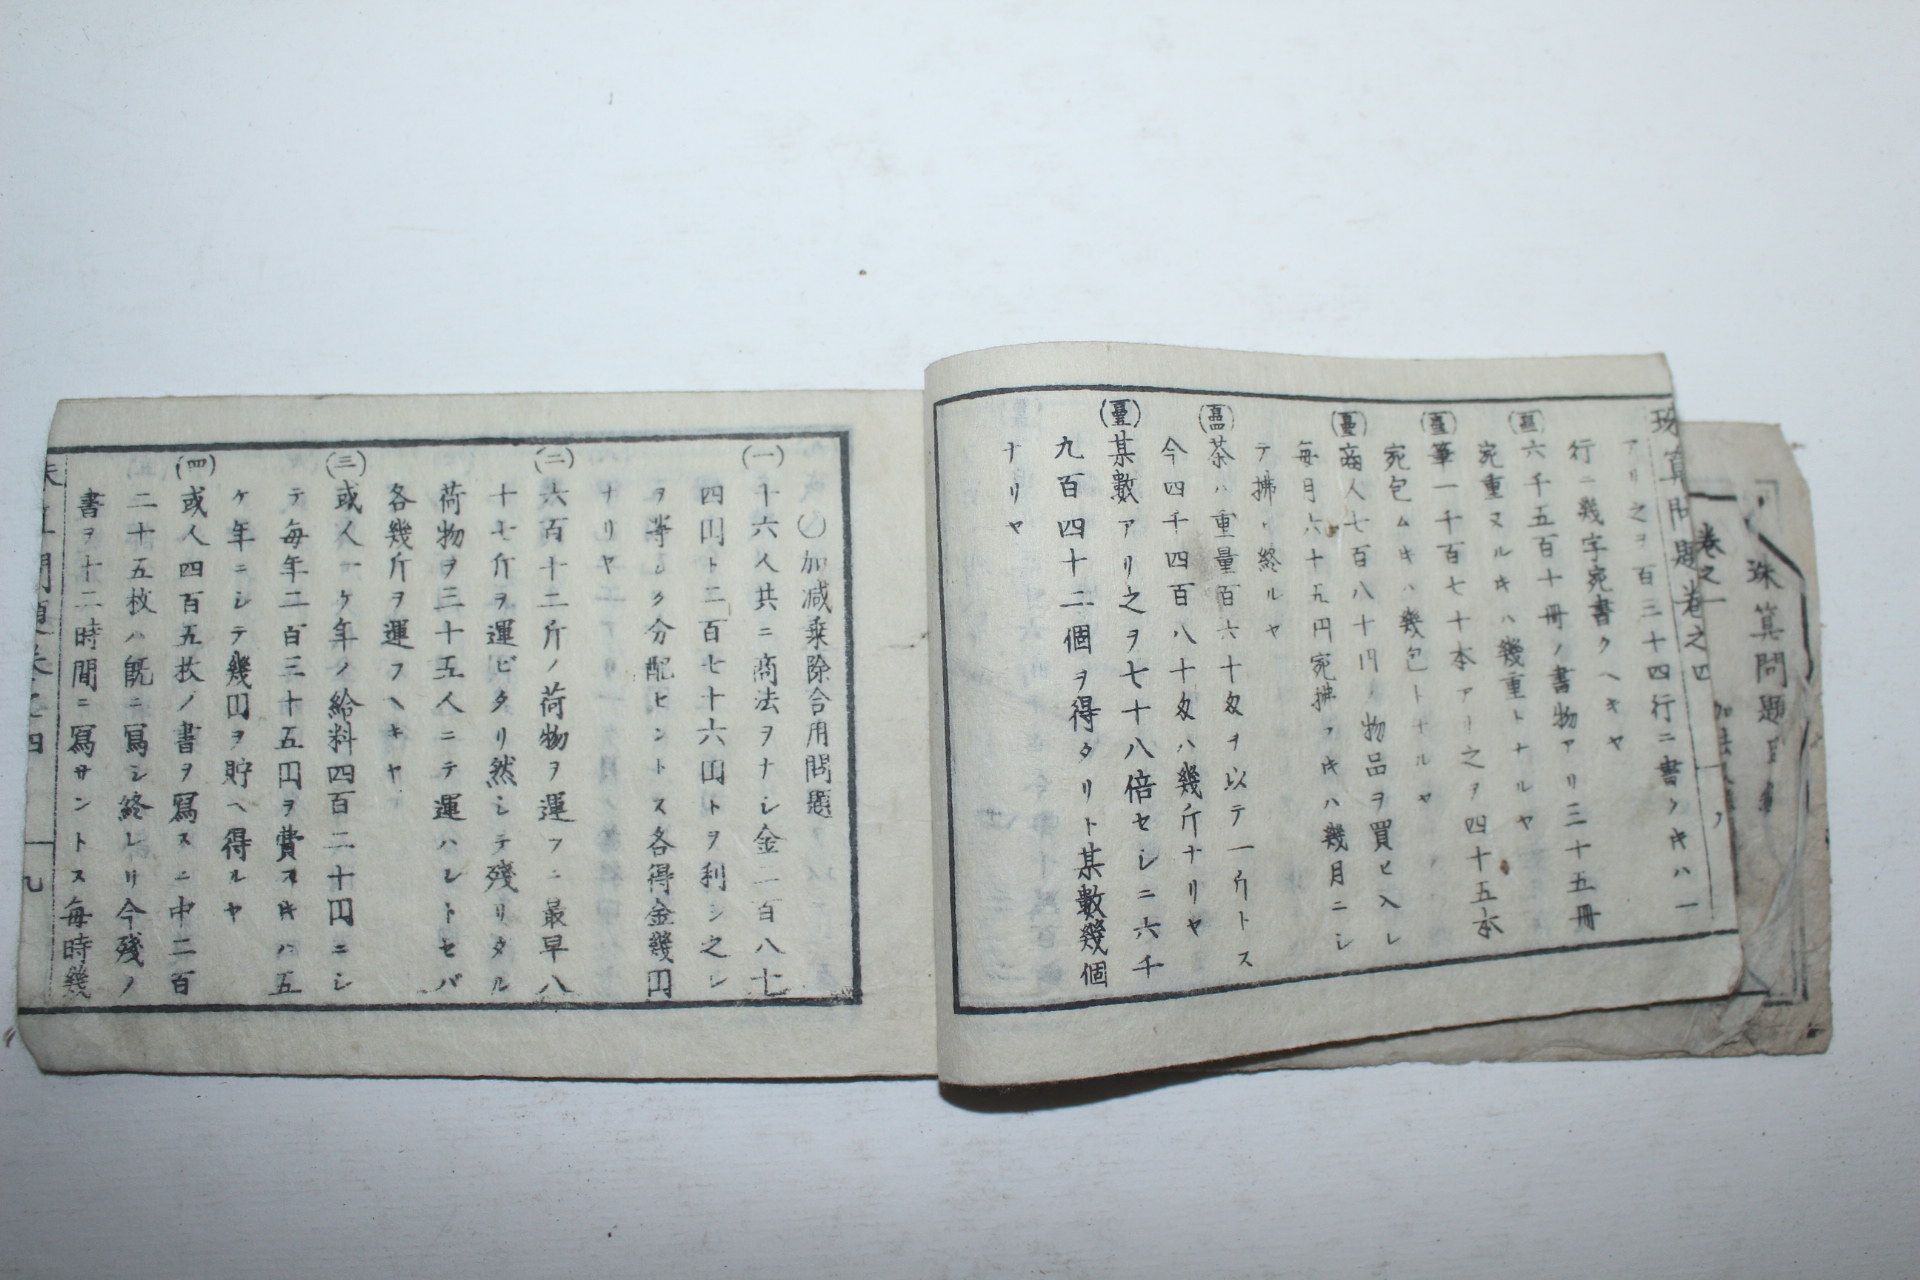 珠算問題
卷之一
珠算問題卷之四
アリ之ヲ百三十四行ニ書クキハ一
行ニ幾字宛書クヘキヤ
六千五百十冊ノ書物アリ三十五冊
宛重ヌルキハ幾重トナルヤ
筆一千百七十本アリ之ヲ四十五本
宛包ムキハ幾包トナルヤ
商人七百八十円ノ物品ヲ買ヒ入レ
毎月六十五円宛拂フキハ幾月ニシ
テ拂ヒ終ルヤ
茶ハ重量百六十匁ヲ以テ一斤トス
今四千四百八十匁ハ幾斤ナリヤ
某數アリ之ヲ七十八倍セシニ六千
九百四十二個ヲ得タリト某數幾個
ナリヤ
加减乗除合用問題
(一)十六人共ニ商法ヲナシ金一百八七
四円ト二百七十六円トヲ利シ之レ
ヲ等シク分配セントス各得金幾円
ナリヤ
(二)六百十二斤ノ荷物ヲ運フニ最早八
十七斤ヲ運ビタリ然シテ殘リタル
荷物ヲ三十五人ニテ運ハントセバ
各幾斤ヲ運フヘキヤ
(三)或人一ケ年ノ給料四百二十円ニシ
テ毎年二百三十五円ヲ費スキハ五
ケ年ニシテ幾円ヲ貯ヘ得ルヤ
(四)或人四百五枚ノ書ヲ寫スニ中二百
二十五枚ハ旣ニ寫シ終レリ今殘ノ
書ヲ十二時間ニ寫サントス毎時幾
九